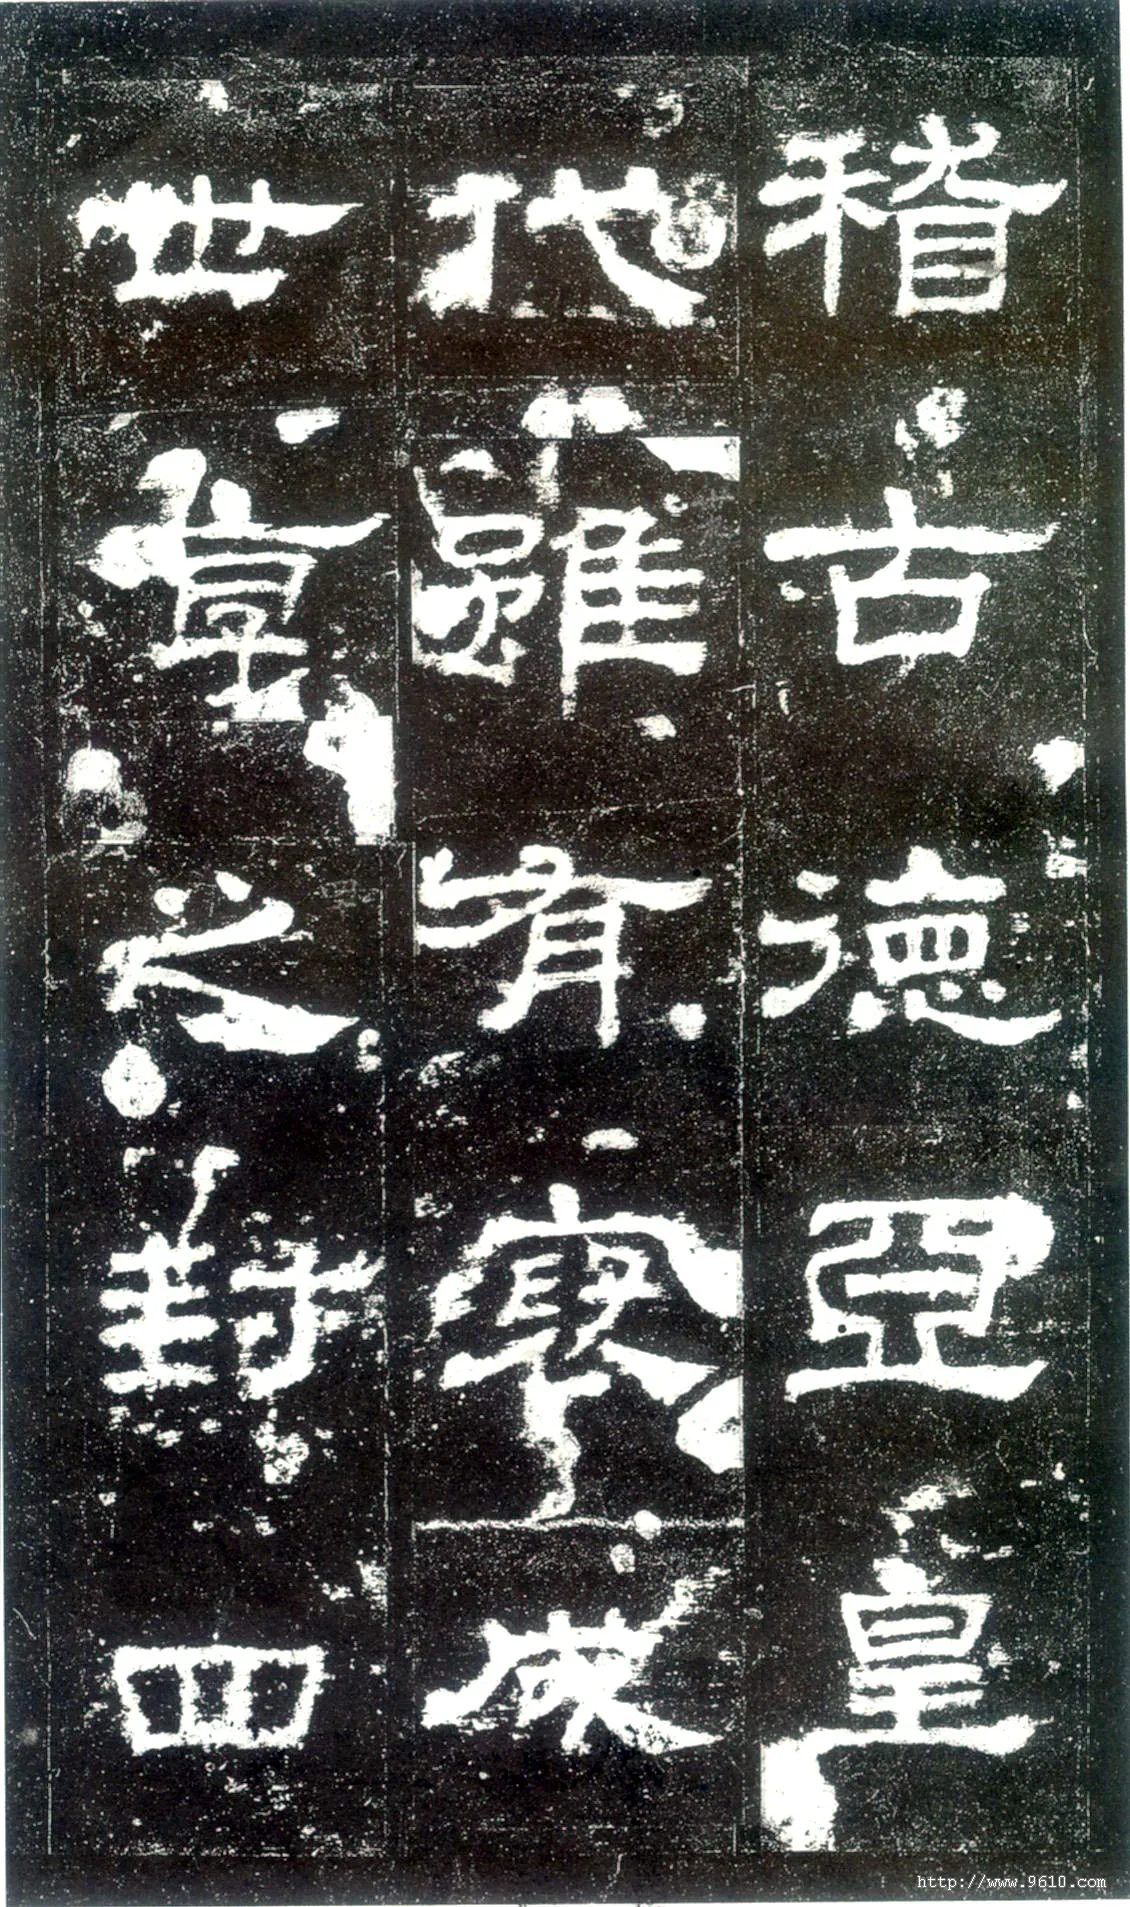 稽古德亞皇
代雖有褒成
世享之封四
http://www.9610.com